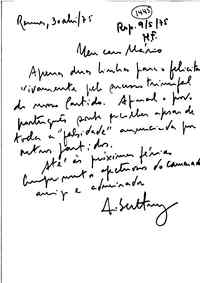 Rennes, 30 abr/75
1443
Resp. 9/5/75
M.S.
Meu caro Mário
Apenas duas linhas para o felicitar
vivamente pelo sucesso triunfal
do nosso Partido. Afinal o povo
português soube escolher apesar de
toda a "publicidade" anunciada por
outros partidos.
Até às próximas férias
Cumprimentos afectuosos do camarada
amigo e admirador